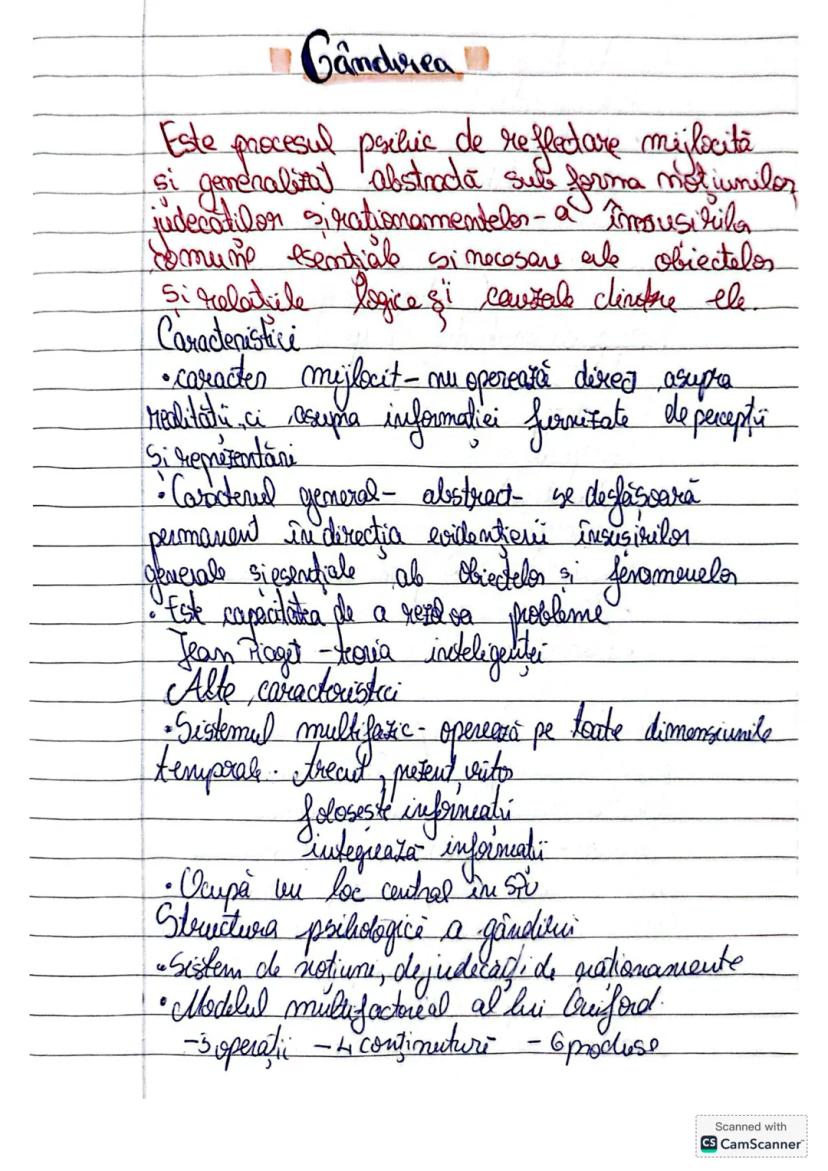 Gândirea
Este procesul psihic de reflectare mijlocită
si generalizat abstractă sub forma noțiunilor,
judecăților și rationamentelor - a însusirilor
comune esențiale si necesare ale obiectelor
și relațiile logice și cauzale dintre ele.
Caracteristici
• caracter mijlocit - nu operează direct asupra
realității, ci asupra informației furnizate de percepții
si reprezentări
• Caracterul general - abstract - se desfășoară
permanent în direcția evidențierii însușirilor
generale si esențiale ale obiectelor și fenomenelor
• Este capacitatea de a rezolva probleme
Jean Piaget - teoria inteligenței
Alte caracteristici
• Sistemul multifazic - operează pe toate dimensiunile
temporale. trecut, prezent, viitor
foloseste informatii
integrează informatii
• Ocupă un loc central în SPU
Structura psihologică a gândirii
• Sistem de noțiuni, de judecăți, de rationamente
• Modelul multifactoreal al lui Guiford.
-5 operații -4 conținuturi -6 produse
Scanned with
CS CamScanner